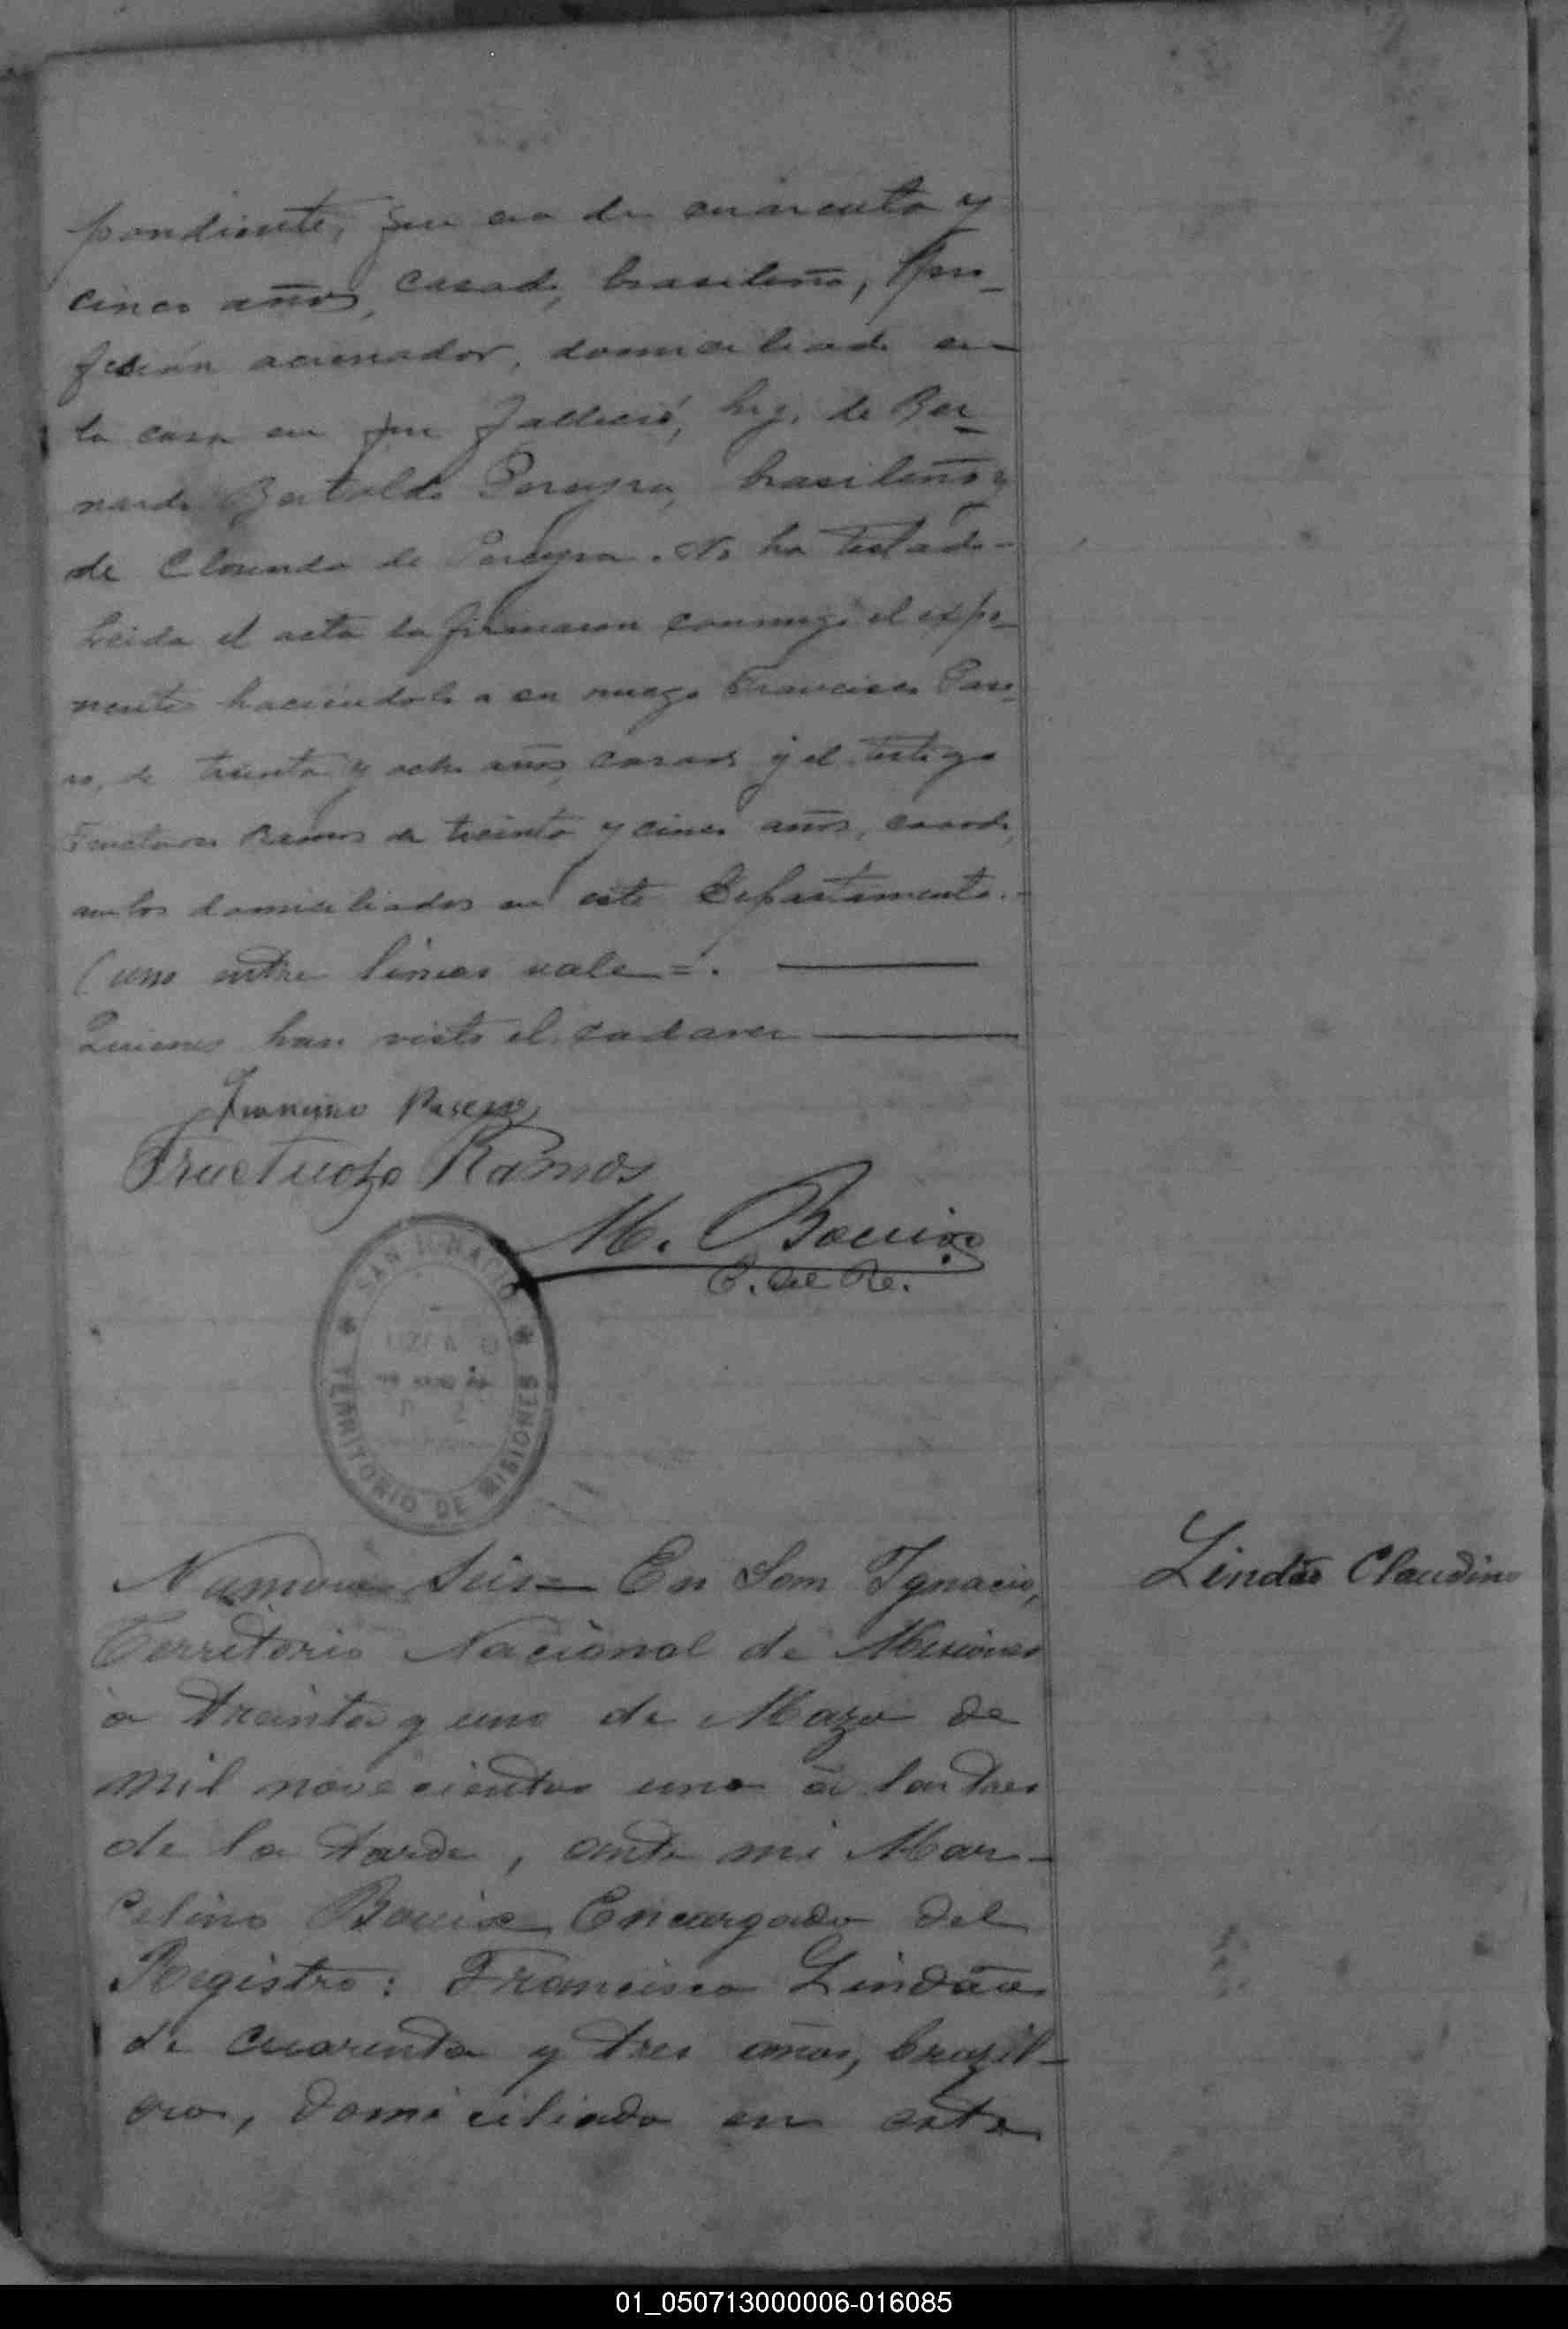 pondiente, que era de cuarenta y
cinco años, casado, brasileño, pro_
fesión acenador, domiciliado en
la casa en que falleció, hijo de Ber_
nardo Bertoldo Pereyra, brasileño y
de Clorinda de Pereyra. No ha testado-
Leida el acta la firmaron conmigo el expo_
nente haciendolo a su ruego Francisco
de treinta y ocho años casado y el testigo
Fructuoso Ramos de treinta y cinco años, casado,
ambos domiciliados en este Departamento.-
(uno entre lineas vale=.
Quienes han visto el cadaver
Francisco
Fructuozo Ramos
M. Bouix
E. del R.
SAN IGNACIO
TERRITORIO DE MISIONES
Numero Seis= En San Ignacio,
Territorio Nacional de Misiones
a treinta y uno de Mazo de
mil novecientos uno a las tres
de la tarde, ante mi Mar-
celino Bouix Encargado del
Registro: Francisco Lindão
de cuarenta y tres años, brazil-
ero, domiciliado en este
Lindão Claudino
01_050713000006-016085